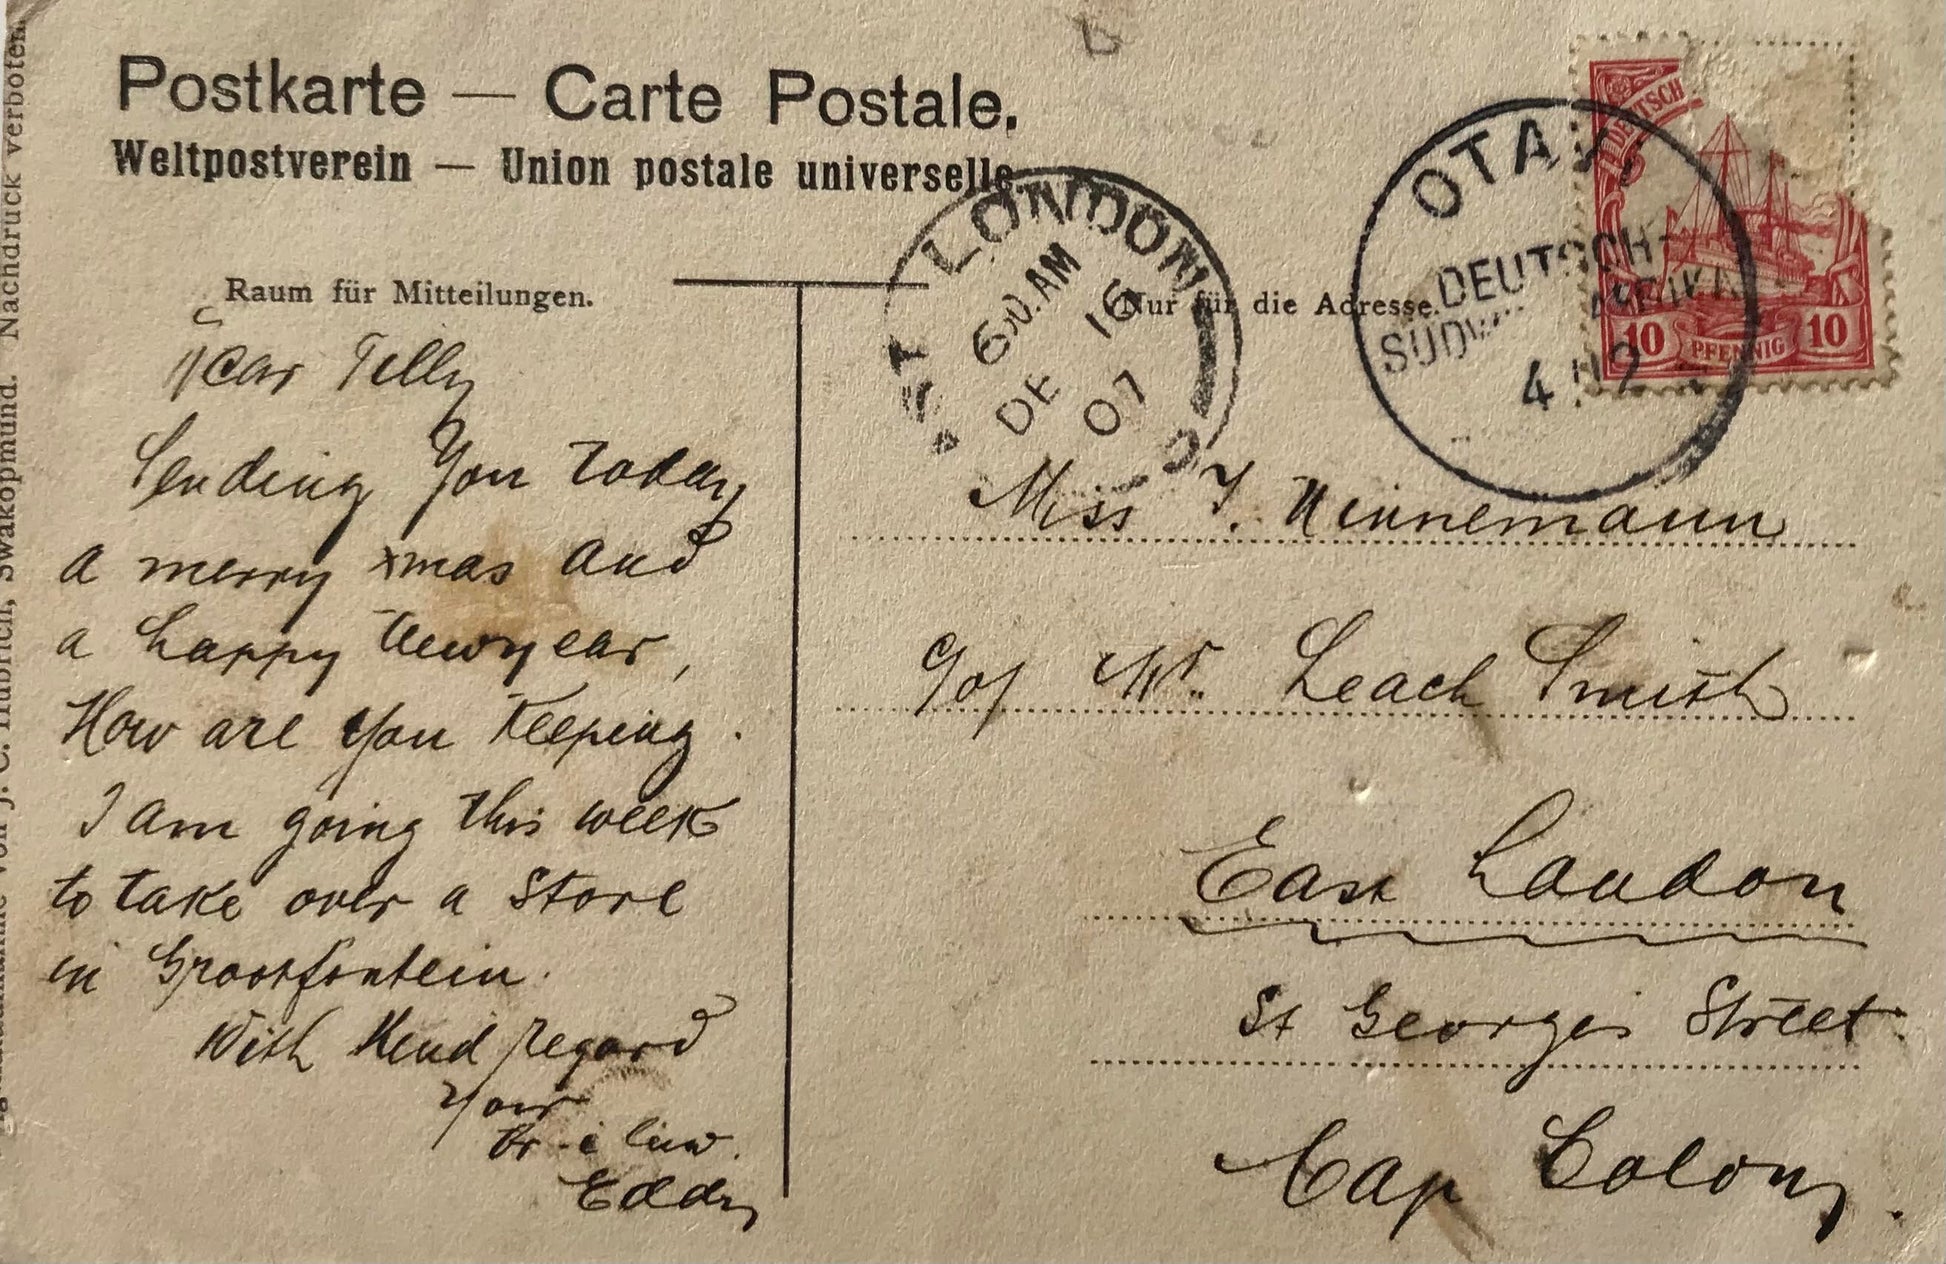 Postkarte — Carte Postale.
Weltpostverein — Union postale universelle
Raum für Mitteilungen.
Nur für die Adresse.
Dear Tilly
Sending you today
a merry xmas and
a happy Newyear,
How are you Keeping.
I am going this week
to take over a Store
in Grootfontein.
With Kind regard
Your
Br. i law.
Eddy
ST LONDON
6 30. AM
DE 16
07
OTAVI
DEUTSCH-
SÜDWESTAFRIKA
4 12
DEUTSCH
10 PFENNIG 10
Miss T. Ninnemann
c/o Mr. Leach Smith
East London
St Georges Street
Cap Colony.
von J. C. Hubrich, Swakopmund. Nachdruck verboten.